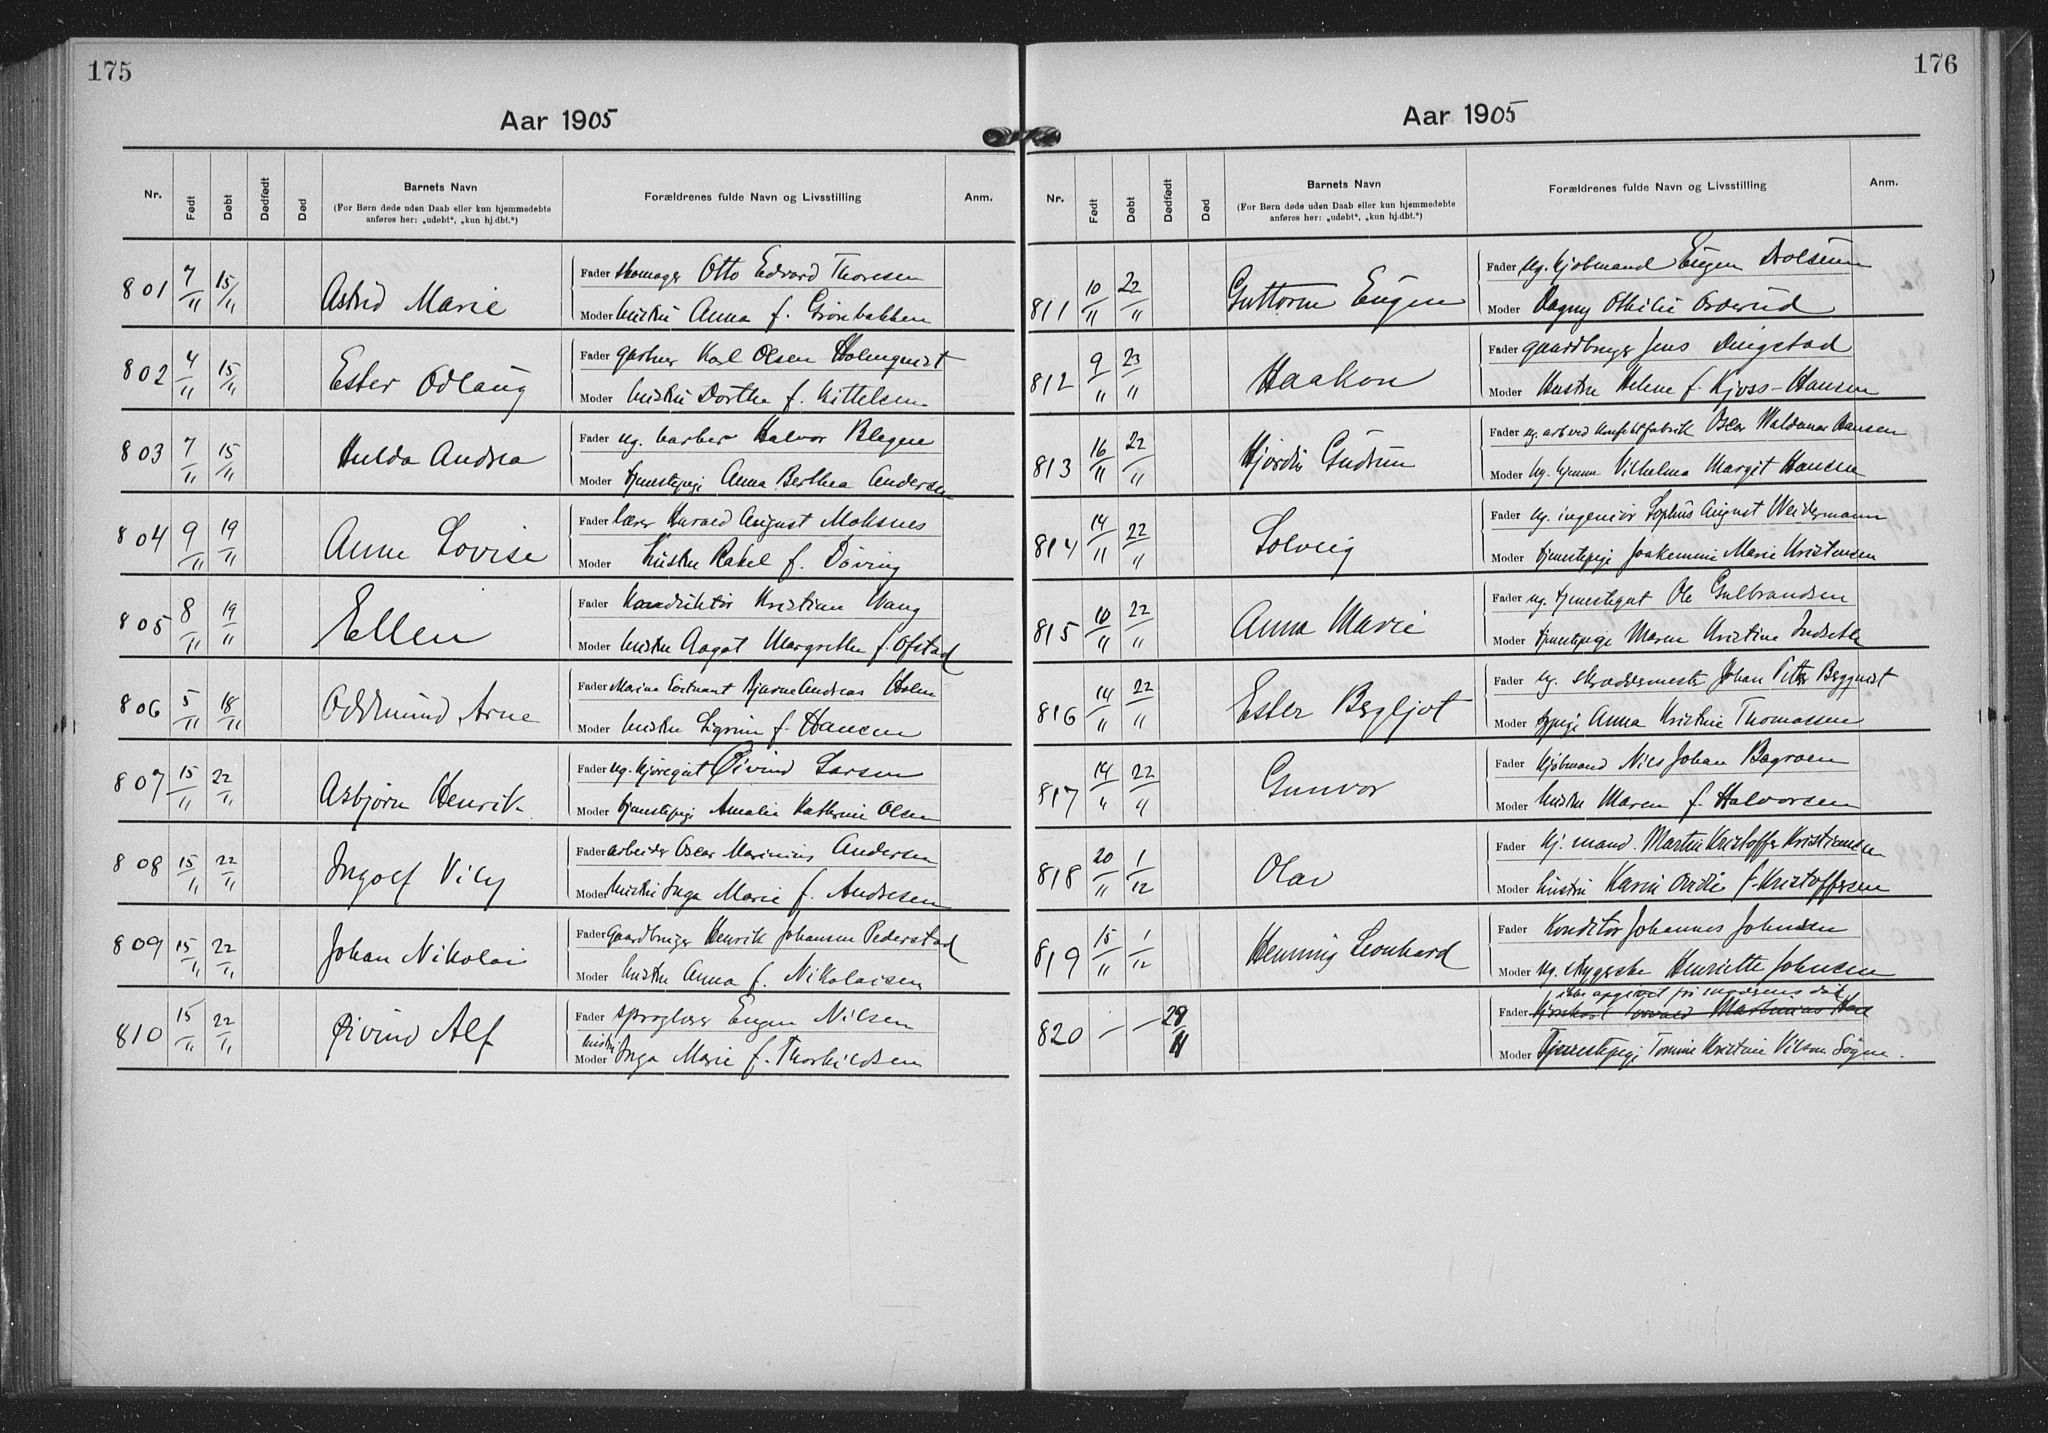 175
Aar 1905
Nr. Født Døbt Dødfødt Død Barnets Navn Forældrenes fulde Navn og Livsstilling Anm.
(For Børn døde uden Daab eller kun hjemmedøbte
anføres her: „udøbt“, „kun hj.dbt.“)
801 7/11 15/11 Astrid Marie Fader skomager Otto Edvard Thoresen
Moder hustru Anna f. Grønebakken
802 4/11 15/11 Ester Odlaug Fader gartner Karl Olsen Holmquist
Moder hustru Dorthe f. Kittelsen
803 7/11 15/11 Hulda Andrea Fader ug. barber Halvor Blegen
Moder tjenestepige Anna Berthea Andersen
804 9/11 19/11 Anne Lovise Fader lærer Harald August Moksnes
Moder hustru Rakel f. Døving
805 8/11 19/11 Ellen Fader Konduktør Kristian Wang
Moder hustru Aagot Margrethe f. Ofstad
806 5/11 18/11 Oddmund Arne Fader Marine Løitnant Bjarne Andreas Holm
Moder hustru Sigrun f. Hansen
807 15/11 22/11 Asbjørn Henrik Fader ug. kjøregut Øivind Larsen
Moder tjenestepige Amalie Kathrine Olsen
808 15/11 22/11 Ingolf Vily Fader arbeider Oscar Marinius Andersen
Moder hustru Inga Marie f. Andresen
809 15/11 22/11 Johan Nikolai Fader gaardbruger Henrik Johansen Pederstad
Moder hustru Anna f. Nikolaisen
810 15/11 22/11 Øivind Alf Fader sproglærer Eugen Nilsen
Moder hustru Inga Marie f. Thorkildsen
176
Aar 1905
Nr. Født Døbt Dødfødt Død Barnets Navn Forældrenes fulde Navn og Livsstilling Anm.
(For Børn døde uden Daab eller kun hjemmedøbte
anføres her: „udøbt“, „kun hj.dbt.“)
811 10/11 22/11 Guttorm Eugen Fader ug. kjøbmand Eugen Dolsum
Moder Dagny Othilie Orderud
812 9/11 23/11 Haakon Fader gaardbruger Jens Dingstad
Moder Hustru Helene f. Kjoss-Hansen
813 16/11 22/11 Hjørdis Gudrun Fader ug. arb ved Konfektfabrik Oscar Waldemar Hansen
Moder ug. hjemme Vilhelma Margit Hansen
814 14/11 22/11 Solveig Fader ug. ingeniør Sophus August Weidemann
Moder tjenestepige Joakemine Marie Kristensen
815 10/11 22/11 Anna Marie Fader ug. tjenestegut Ole Gulbrandsen
Moder tjenestepige Maren Kristine Indseth
816 14/11 22/11 Ester Bergljot Fader ug. skræddermester Johan Petter Bergquist
Moder tjpige Anna Kristine Thomassen
817 14/11 22/11 Gunvor Fader Kjøbmand Nils Johan Bagroen
Moder hustru Maren f. Halvorsen
818 20/11 1/12 Olav Fader Kj. mand. Martin Kristoffer Kristiansen
Moder hustru Karen Ovidie f. Kristoffersen
819 15/11 1/12 Henning Leonhard Fader Konditor Johannes Johnsen
Moder ug. Henriette Johnsen
820 — — 29/11 Fader ikke opgivet
Moder Tjenestepige Tomine Kristine Vilson Søgne.